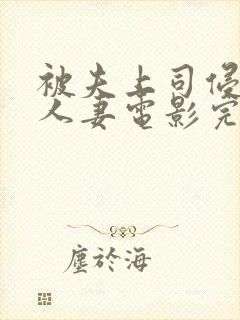 被夫上司侵
人妻電影完
塵於海